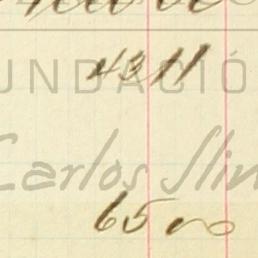 43 11
FUNDACIÓ
Carlos Slim
65 00